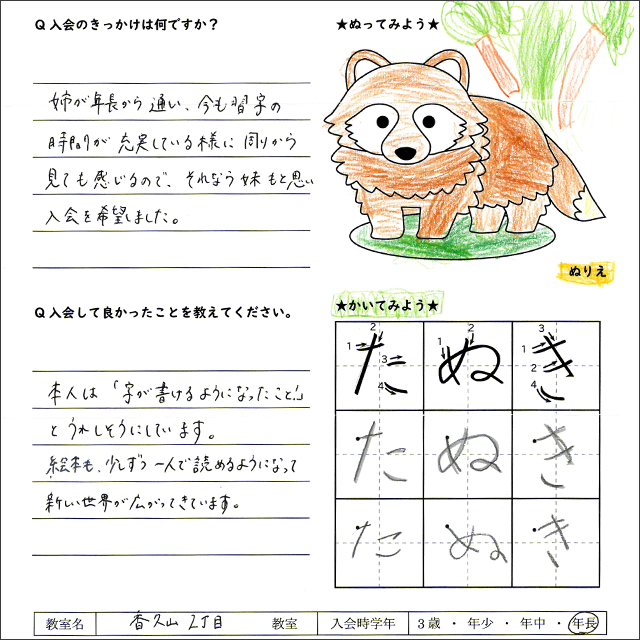 Q 入会のきっかけは何ですか？
姉が年長から通い、今も習字の
時間が充実している様に周りから
見ても感じるので、それなら妹もと思い
入会を希望しました。
Q 入会して良かったことを教えてください。
本人は「字が書けるようになったこと!」
とうれしそうにしています。
絵本も、少しずつ一人で読めるようになって
新しい世界が広がってきています。
★ぬってみよう★
ぬりえ
★かいてみよう★
1 2 3 4 1 2 3 1 2 4
た ぬ き
た ぬ き
た ぬ き
教室名 香久山2丁目 教室 入会時学年 3歳 ・ 年少 ・ 年中 ・ 年長